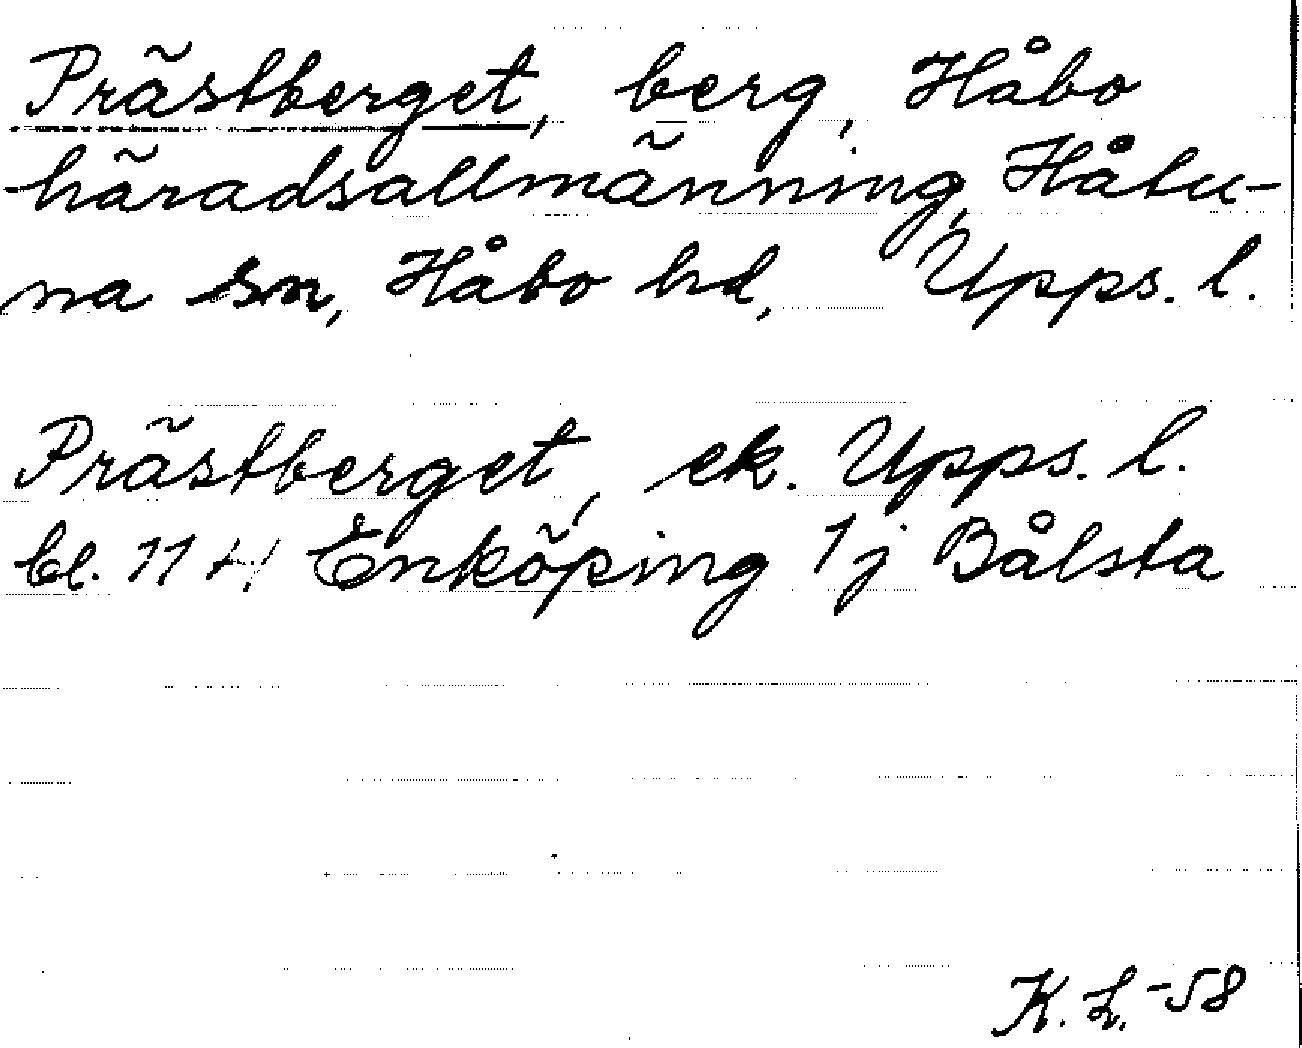 Prästberget, berg, Håbo
häradsallmänning, Håtu-
na sn, Håbo hd, Upps. l.
Prästberget, ek. Upps. l.
bl. 11 H Enköping 1j Bålsta
K. L. -58